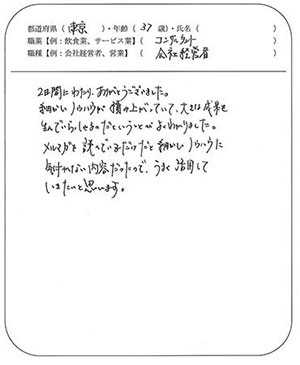 都道府県（ 東京 ）・年齢（ 37 歳）・氏名（ ）
職業【例：飲食業、サービス業】（ コンサルタント ）
職種【例：会社経営者、営業】（ 会社経営者 ）
2日間にわたり、ありがとうございました。
細かいノウハウが積み上がっていて、大きな成果を
生んでいらっしゃるのだということがよくわかりました。
メルマガを読んでいるだけだと細かいノウハウに
気付けない内容だったので、うまく活用して
いきたいと思います。